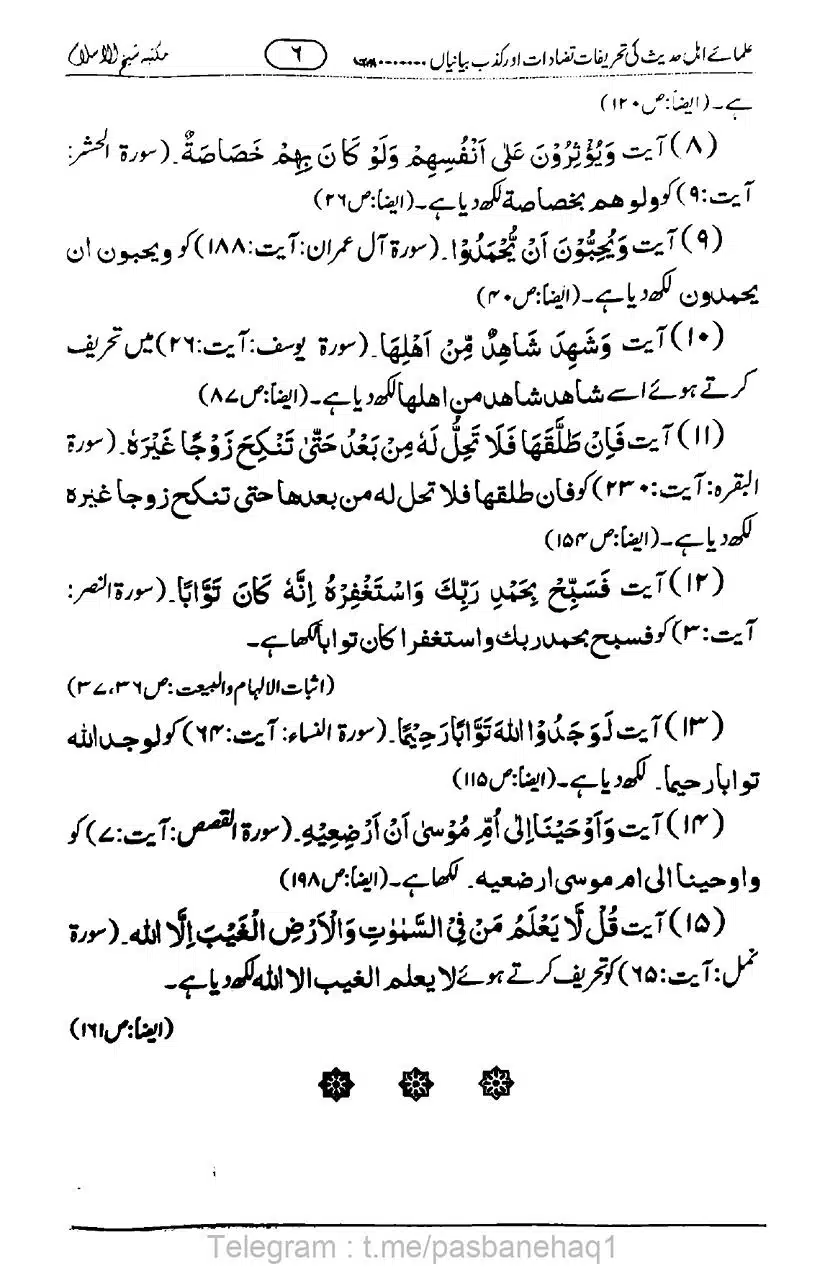 علمائے اہل حدیث کی تحریفات تضادات اور کذب بیانیاں ........ ۶ مکتبہ شیخ الاسلام
ہے۔(ایضاً:ص۱۲۰)
(۸)آیت وَيُؤْثِرُوْنَ عَلٰى اَنْفُسِهِمْ وَلَوْ كَانَ بِهِمْ خَصَاصَةٌ۔(سورۃ الحشر:
آیت:۹)کو ولو هم بخصاصة لکھ دیا ہے۔(ایضاً:ص۲۶)
(۹)آیت وَيُحِبُّوْنَ اَنْ يُّحْمَدُوْا۔(سورۃ آل عمران:آیت:۱۸۸)کو ویحبون ان
یحمدون لکھ دیا ہے۔(ایضاً:ص۴۰)
(۱۰)آیت وَشَهِدَ شَاهِدٌ مِّنْ اَهْلِهَا۔(سورۃ یوسف:آیت:۲۶)میں تحریف
کرتے ہوئے اسے شاهد شاهد من اهلها لکھ دیا ہے۔(ایضاً:ص۸۷)
(۱۱)آیت فَاِنْ طَلَّقَهَا فَلَا تَحِلُّ لَهٗ مِنْ بَعْدُ حَتّٰى تَنْكِحَ زَوْجًا غَيْرَهٗ۔(سورۃ
البقرہ:آیت:۲۳۰)کو فان طلقها فلا تحل له من بعدها حتی تنکح زوجا غیرہ
لکھ دیا ہے۔(ایضاً:ص۱۵۴)
(۱۲)آیت فَسَبِّحْ بِحَمْدِ رَبِّكَ وَاسْتَغْفِرْهُ اِنَّهٗ كَانَ تَوَّابًا۔(سورۃ النصر:
آیت:۳)کو فسبح بحمد ربك واستغفرا کان توابا لکھا ہے۔
(اثبات الالہام والبیعت:ص۳۷،۳۶)
(۱۳)آیت لَوَجَدُوْا اللهَ تَوَّابًا رَحِيْمًا۔(سورۃ النساء:آیت:۶۴)کو لوجد الله
توابا رحیما۔ لکھ دیا ہے۔(ایضاً:ص۱۱۵)
(۱۴)آیت وَاَوْحَيْنَا اِلٰى اُمِّ مُوْسٰى اَنْ اَرْضِعِيْهِ۔(سورۃ القصص:آیت:۷)کو
واوحینا الی ام موسی ارضعیه۔ لکھا ہے۔(ایضاً:ص۱۹۸)
(۱۵)آیت قُلْ لَّا يَعْلَمُ مَنْ فِى السَّمٰوٰتِ وَالْاَرْضِ الْغَيْبَ اِلَّا الله۔(سورۃ
نمل:آیت:۶۵)کو تحریف کرتے ہوئے لا یعلم الغیب الا الله لکھ دیا ہے۔
(ایضاً:ص۱۶۱)
Telegram : t.me/pasbanehaq1